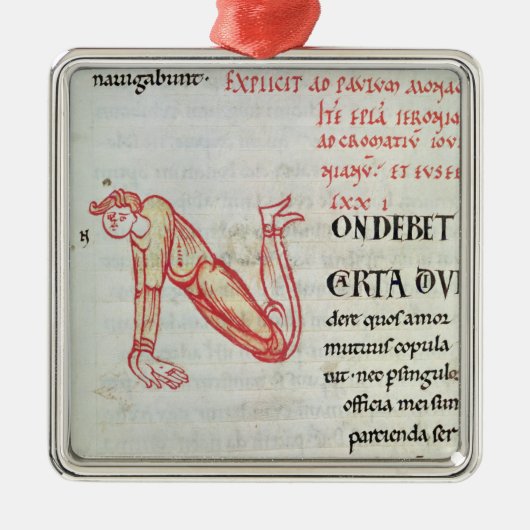 nauigabunt·
EXPLICIT AD PAULUM MONAC
ITE EPLA IERONIM
AD CROMATIU IOUI
NIANU· ET EUSEB
LXX I
N
ON DEBET
CARTA DIVI
dere quos amor
mutuus copula
uit· nec p singulo
officia mei sun
parcienda ser